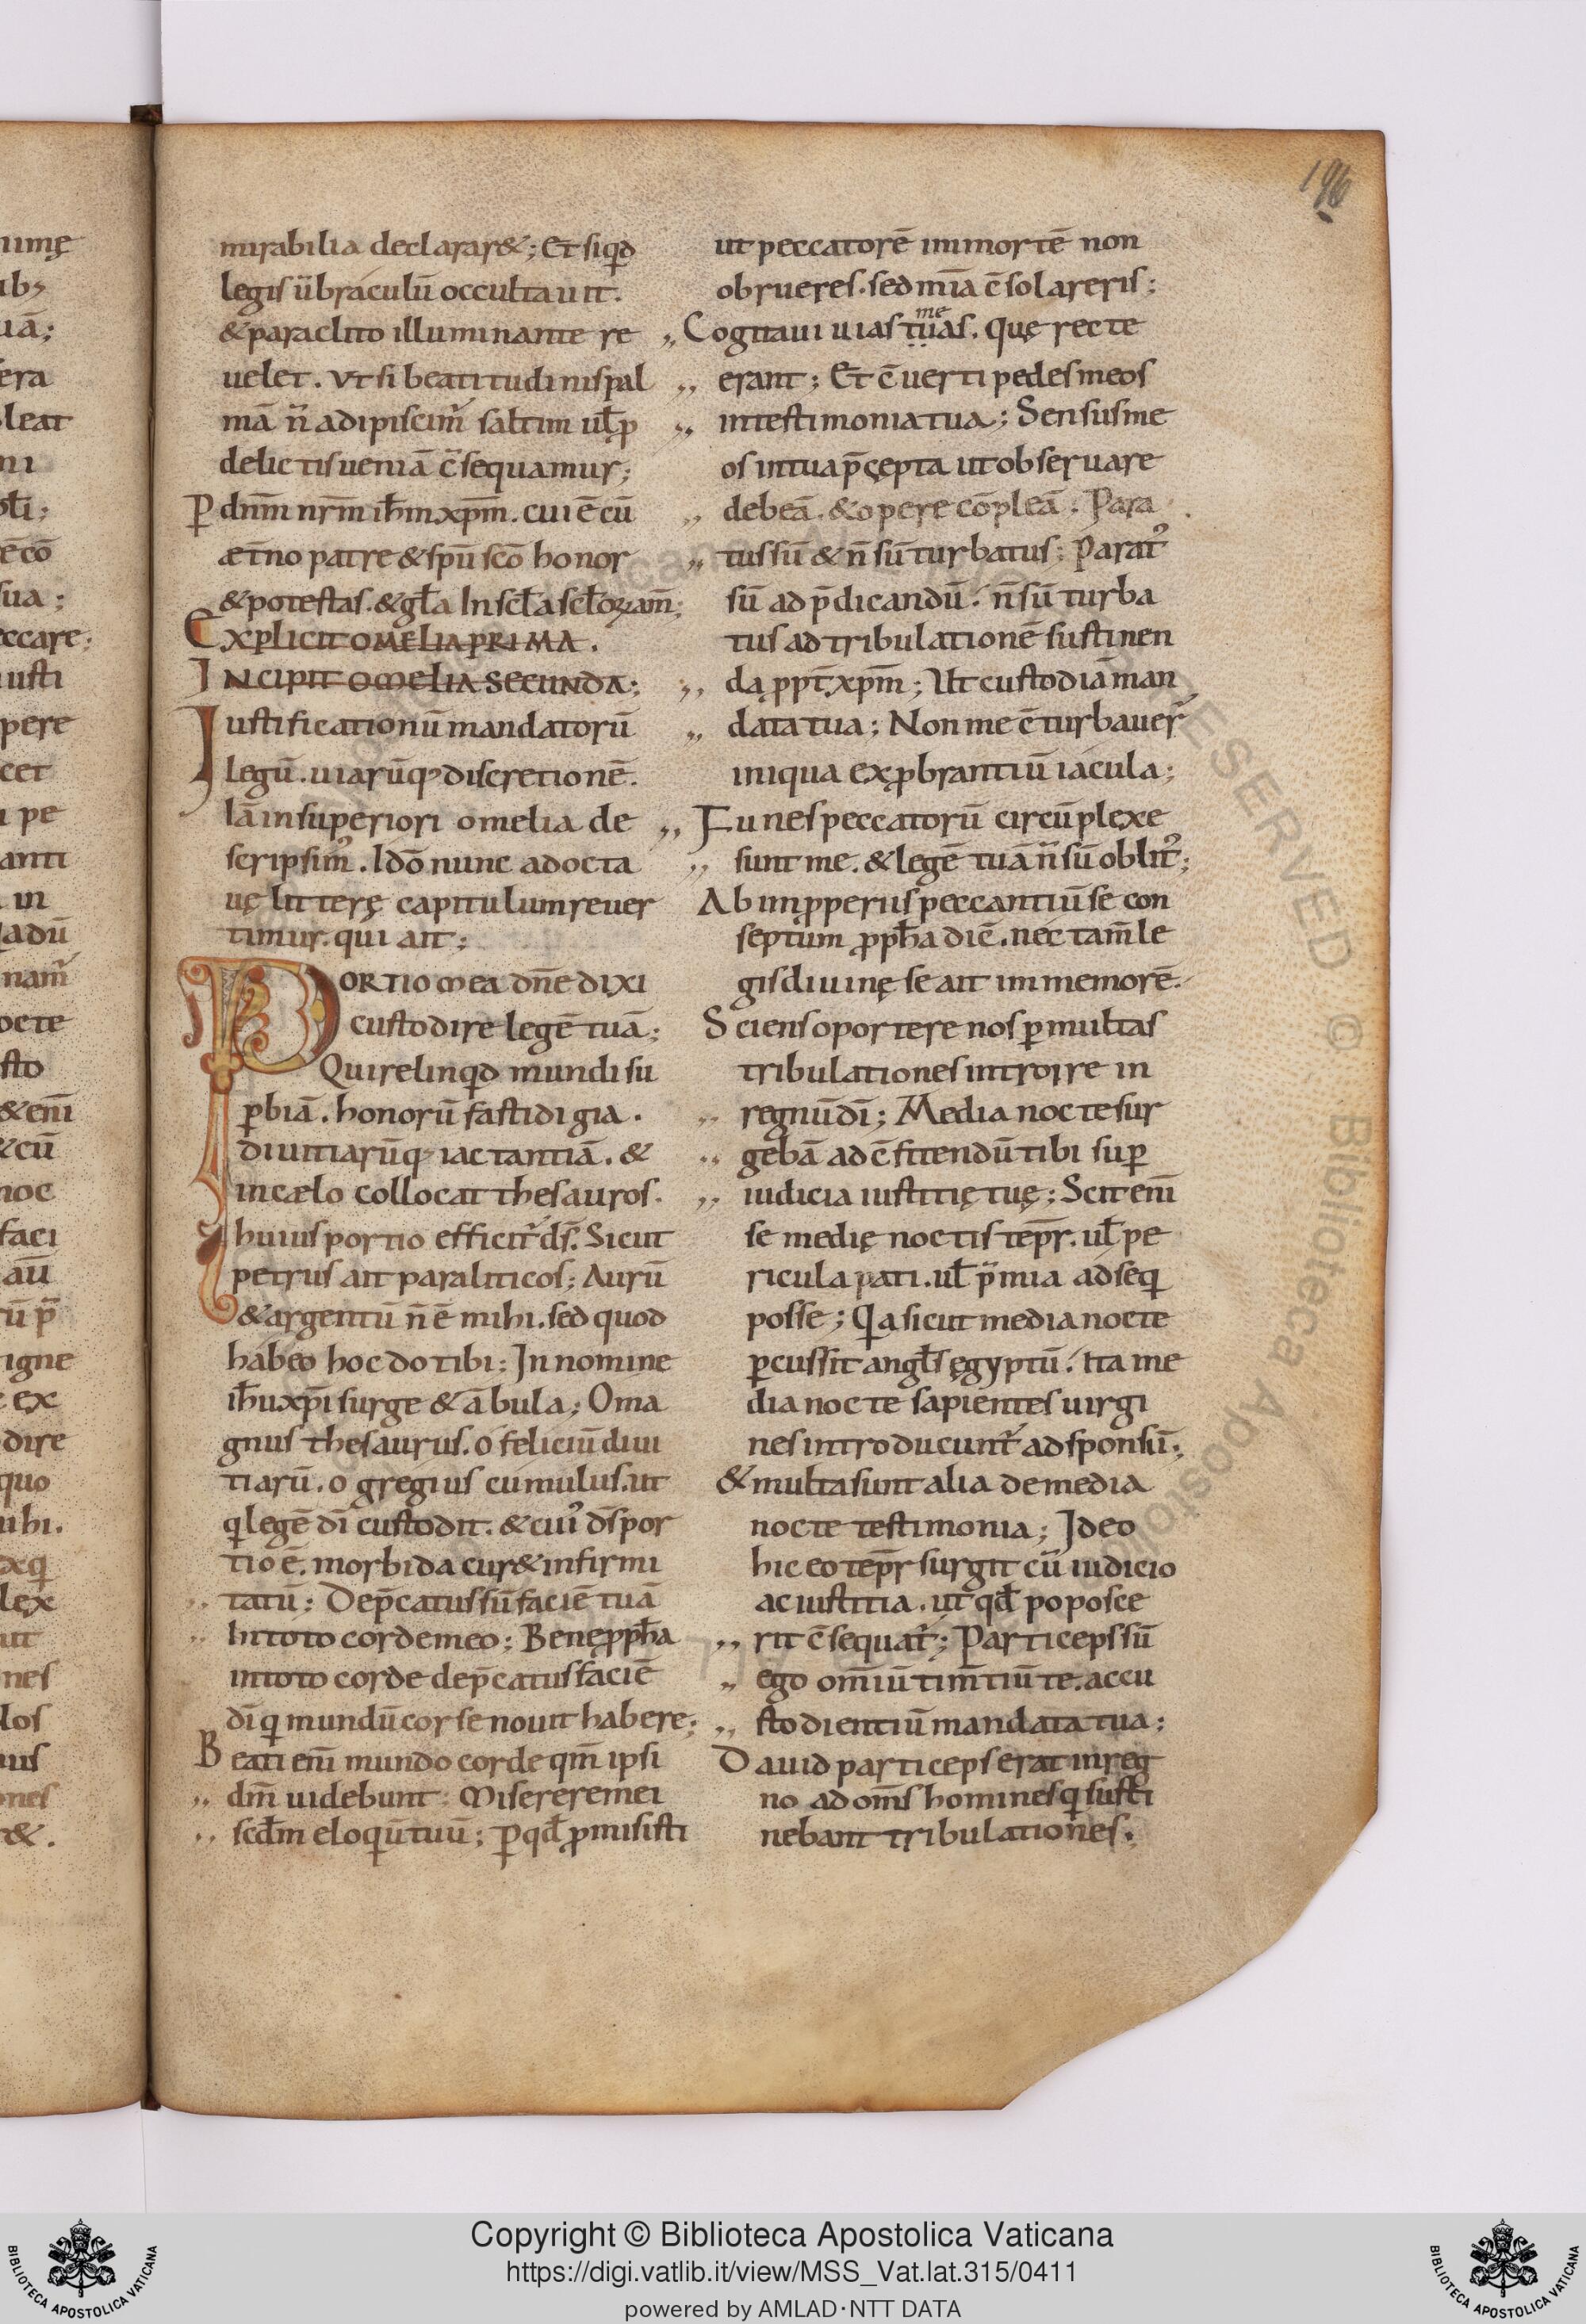 196
nimę
ibꝫ
uā;
era
leat
ni
ol̄i;
ēcō
sua;
eccare;
iusti
pere
cet
i pe
anti
in
adū
nam̄
octe
sto
&eni̅
&cū
noc
faci
au̅
ū p̄
igne
ex
dire
quo
ihi.
lex
ut
nes
los
ius
ones
r&.
mirabilia declarar&; Et siqd
legis ūbraculū occultauit.
& paraclito illuminante re
uelet. Vt si beatitudinis pal
mā n̄ adipiscim̄ saltim ul̄ ꝓ
delictis ueniā c̄sequamur;
P dn̄m nr̄m ih̄m xp̄m. cui ē cū
æt̄no patre & sp̄u sc̄o honor
& potestas. & gl̄a In scl̄a scl̄oꝝ am̄;
Explicit omelia prima.
Incipit omelia secunda;
Iustificationū mandatorū
legū. uiarūq; discretionē.
Iā in superiori omelia de
scripsim᾽. Idō nunc ad octa
uę litterę capitulum reuer
timur. qui ait;
PORTIO mea dn̄e dixi
custodire legē tuā;
Qui relinqd mundi su
ꝑbiā. honorū fastidigia.
diuitiarūq; iactantiā. &
in cælo collocat thesauros.
huius portio efficit᾽ ds̄. Sicut
petrus ait paraliticos; Aurū
& argentū n̄ ē mihi. sed quod
habeo hoc do tibi; In nomine
ih̄u xp̄i surge & ābula; O ma
gnus thesaurus. o feliciū diui
tiarū. o gregius cumulus. ut
q legē dī custodit. & cui᾽ ds̄ por
tio ē. morbida cur& infirmi
tatū; Dep̄catus sū faciē tuā
In toto corde meo; Bene ꝓph̄a
in toto corde dep̄catus faciē
dī q mundū cor se nouit habere;
Beati eni̅ mundo corde qm̄ ipsi
dm̄ uidebunt; Miserere mei
scd̄m eloquiū tuū; P qd̄ ꝓmisisti
ut peccatorē in mortē non
obrueres. sed mīa c̄solareris;
me
Cogitaui uias tuas. quę recte
erant; Et c̄uerti pedes meos
in testimonia tua; Sensus me
os in tua p̄cepta ut obseruare
debeā. & opere cōpleā; Para
tus sū & n̄ sū turbatus; Parat᾽
sū ad p̄dicandū. n̄ sū turba
tus ad tribulationē sustinen
dą ꝓpt̄ xp̄m; Ut custodiā man
data tua; Non me c̄turbauer̄
iniqua exꝓbrantiū iacula;
Funes peccatorū circūplexe
sunt me. & legē tuā n̄ sū oblit᾽;
Ab imꝓperiis peccantiū se con
septum ꝓph̄a diē. nec tam̄ le
gis diuinę se ait immemorē.
Sciens oportere nos ꝑ multas
tribulationes introire in
regnū dī; Media nocte sur
gebā ad c̄fitendū tibi suꝑ
iudicia iustitię tuę; Scit eni̅
se medię noctis tēpr. ul̄ pe
ricula pati. ul̄ p̄mia adseq
posse; Qa sicut media nocte
ꝑcussit angl̄s ęgyptū. ita me
dia nocte sapientes uirgi
nes introducunt᾽ ad sponsū;
& multa sunt alia de media
nocte testimonia; Ideo
hic eo tēpr surgit cū iudicio
ac iustitia. ut qd̄ poposce
rit c̄sequat᾽; Particeps sū
ego om̄iū tim̄tiū te. ac cu
stodientiū mandata tua;
Dauid particeps erat in reg
no ad om̄s homines q susti
nebant tribulationes.
Copyright © Biblioteca Apostolica Vaticana
https://digi.vatlib.it/view/MSS_Vat.lat.315/0411
powered by AMLAD·NTT DATA
BIBLIOTECA APOSTOLICA VATICANA
BIBLIOTECA APOSTOLICA VATICANA